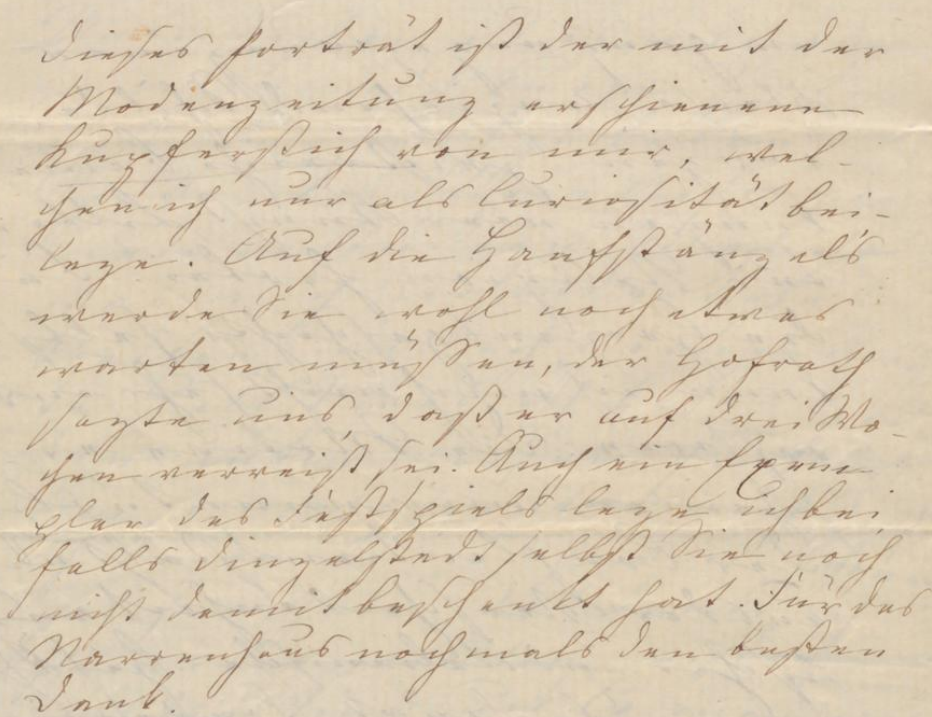 dieses Porträt ist der mit der
Modenzeitung erschienene
Kupferstich von mir, wel-
chen ich nur als Curiosität bei-
lege. Auf die Hanfstängels
werde Sie wohl noch etwas
warten müssen, der Hofrath
sagte uns, daß er auf drei Wo-
chen verreist sei. Auch ein Exem-
plar des Festspiels lege ich bei
falls Dingelstedt selbst Sie noch
nicht damit beschenkt hat. Für das
Narrenhaus nochmals den besten
Dank.